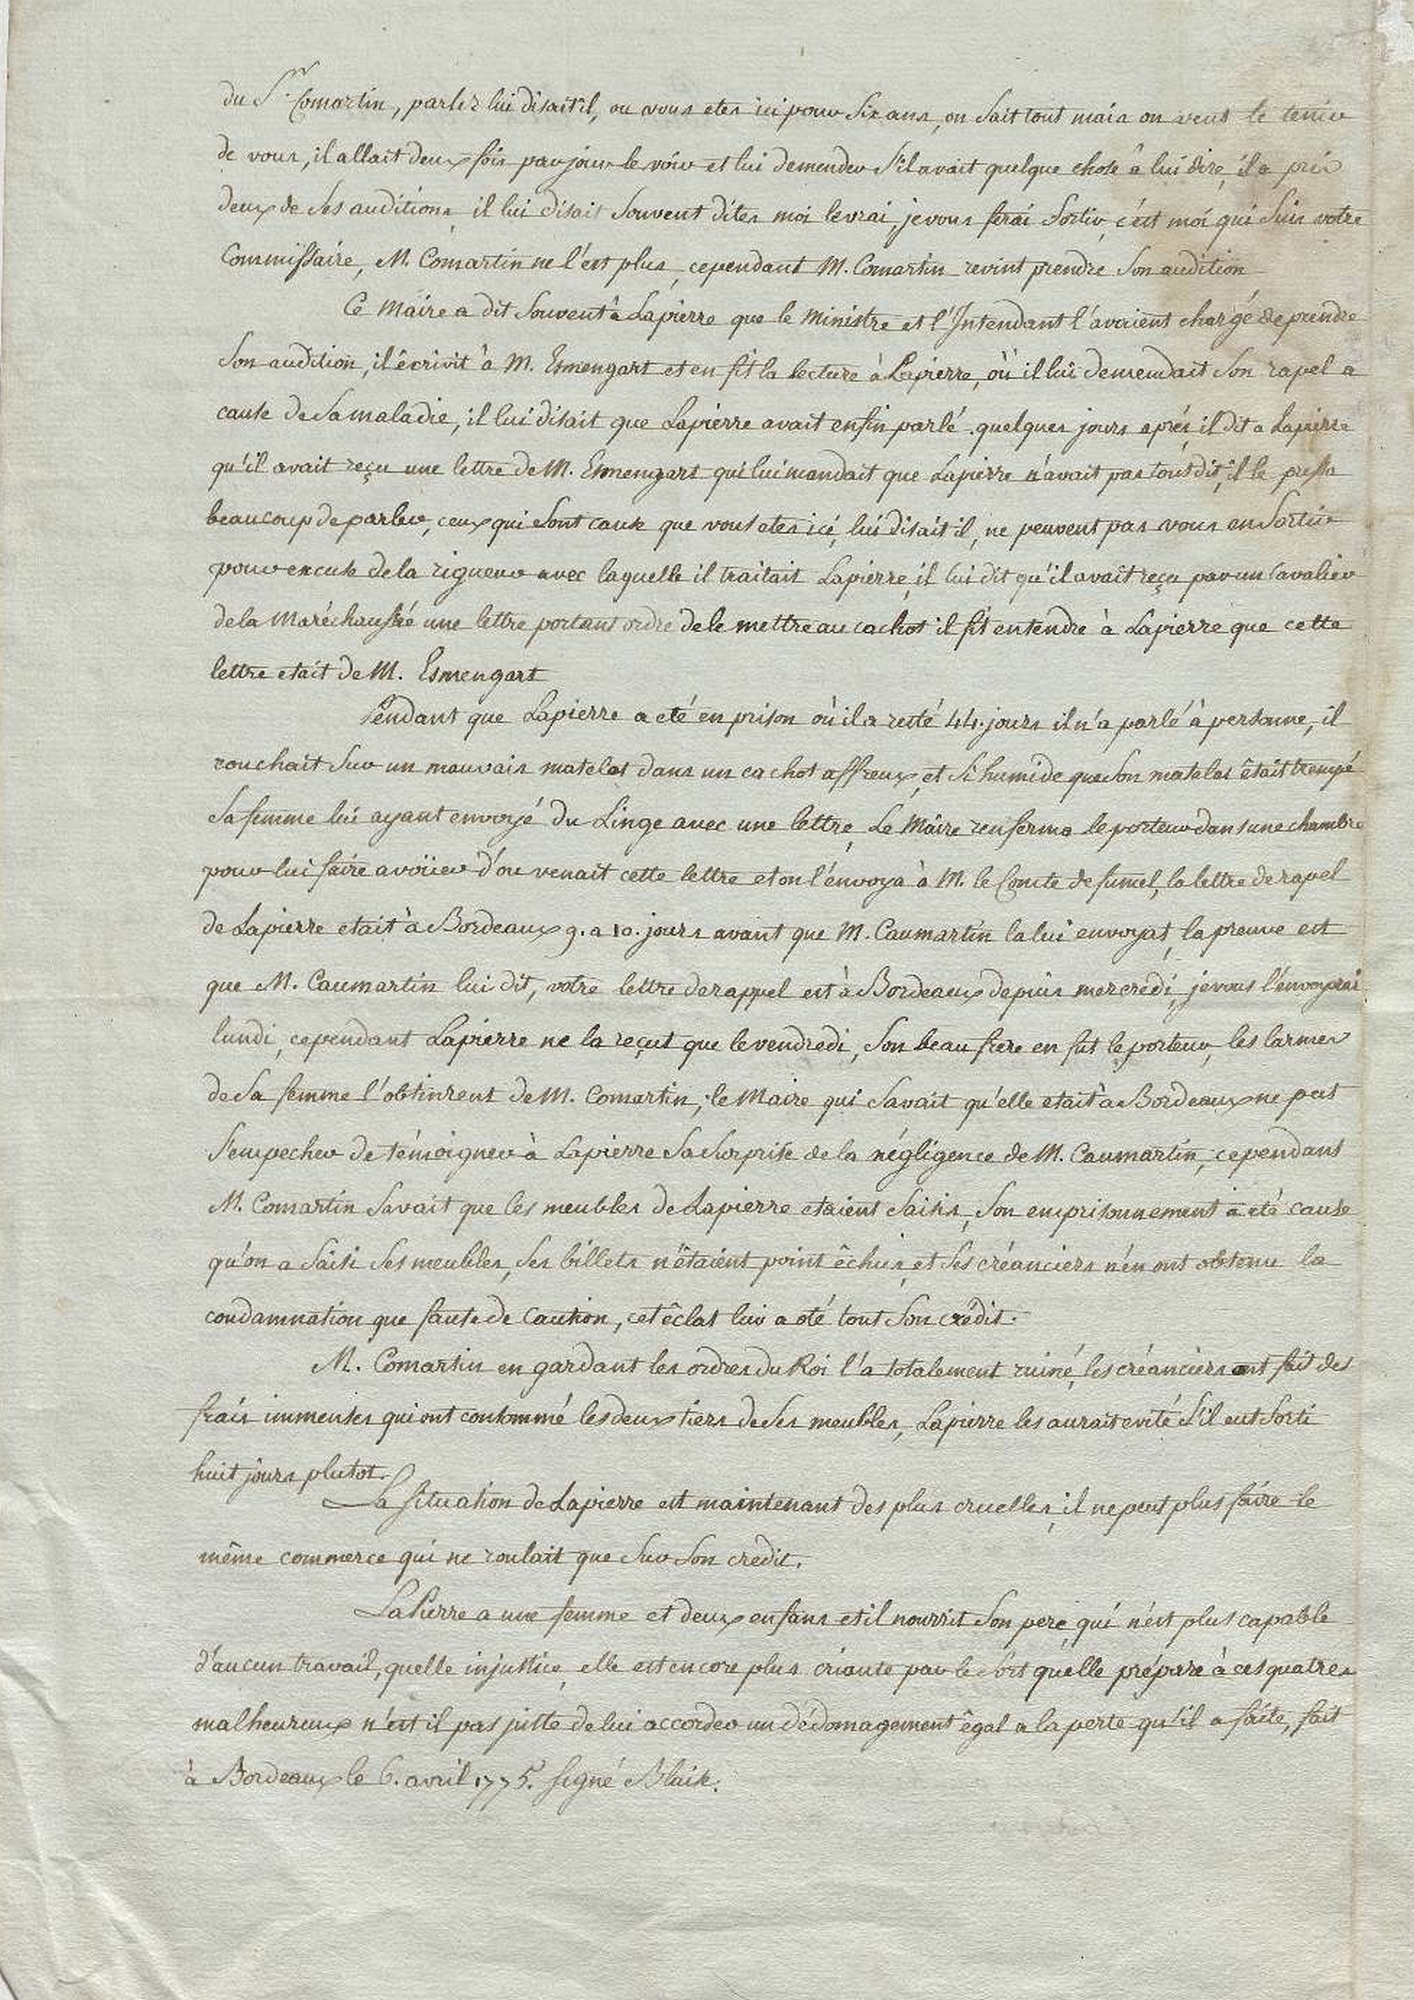 du S.r Comartin, parlez lui disait il, ou vous etes ici pour Six ans, on Sait tout mais on veut le tenir
de vous, il allait deux fois par jour le voir et lui demender S'il avait quelque chose à lui dire, il a pris
deux de Ses auditions il lui disait Souvent dites moi le vrai, je vous ferai Sortir, c'est moi qui Suis votre
Commissaire, M. Comartin ne l'est plus, cependant M. Comartin revint prendre Son audition
Ce Maire a dit Souvent à Lapierre que le Ministre et l'Intendant l'avaient chargé de prendre
Son audition, il êcrivit à M. Esmengart et en fit la lecture à Lapierre, où il lui demendait Son rapel a
cause de Sa maladie, il lui disait que Lapierre avait enfin parlé. quelques jours aprés, il dit a Lapierre
qu'il avait reçu une lettre de M. Esmengart qui lui mandait que Lapierre n'avait pas tout dit, il le pressa
beaucoup de parler, ceux qui Sont cause que vous etes ici, lui disait il, ne peuvent pas vous en Sortir
pour excuse de la rigueur avec laquelle il traitait Lapierre, il lui dit qu'il avait reçu par un Cavalier
de la Maréchaussée une lettre portant ordre de le mettre au cachot il fit entendre à Lapierre que cette
lettre etait de M. Esmengart
Pendant que Lapierre a eté en prison où il a resté 44. jours il n'a parlé à personne, il
couchait Sur un mauvais matelas dans un cachot affreux, et Si humide que Son matelas êtait trempé
Sa femme lui ayant envoyé du Linge avec une lettre, Le Maire renferma le porteur dans une chambre
pour lui faire avoüer d'ou venait cette lettre et on l'envoya à M. le Comte de fumel, la lettre de rapel
de Lapierre etait à Bordeaux 9. a 10. jours avant que M. Caumartin la lui envoyat, la preuve est
que M. Caumartin lui dit, votre lettre de rappel est à Bordeaux depuis mercredi, je vous l'envoyrai
lundi, cependant Lapierre ne la reçut que le vendredi, Son beau frere en fut le porteur, les larmes
de Sa femme l'obtinrent de M. Comartin, le Maire qui Savait qu'elle etait à Bordeaux ne put
S'empecher de témoigner à Lapierre Sa Surprise de la négligence de M. Caumartin, cependant
M. Comartin Savait que les meubles de Lapierre etaient Saisis, Son emprisonnement a eté cause
qu'on a Saisi Ses meubles, Ses billets n'êtaient point êchus, et Ses créanciers n'en ont obtenu la
condamnation que faute de Caution, cet êclat lui a oté tout Son crédit.
M. Comartin en gardant les ordres du Roi l'a totalement ruiné, les créanciers ont fait des
frais immenses qui ont consommé les deux tiers de Ses meubles, Lapierre les aurait evité S'il eut Sorti
huit jours plutot.
La Situation de Lapierre est maintenant des plus cruelles, il ne peut plus faire le
même commerce qui ne roulait que Sur Son credit.
LaPierre a une femme et deux enfans et il nourrit Son pere qui n'est plus capable
d'aucun travail, quelle injustice, elle est encore plus criante par le Sort quelle prépare à ces quatres
malheureux n'est il pas juste de lui accorder un dédomagement êgal a la perte qu'il a faite, fait
à Bordeaux le 6. avril 1775. Signé Blaise.